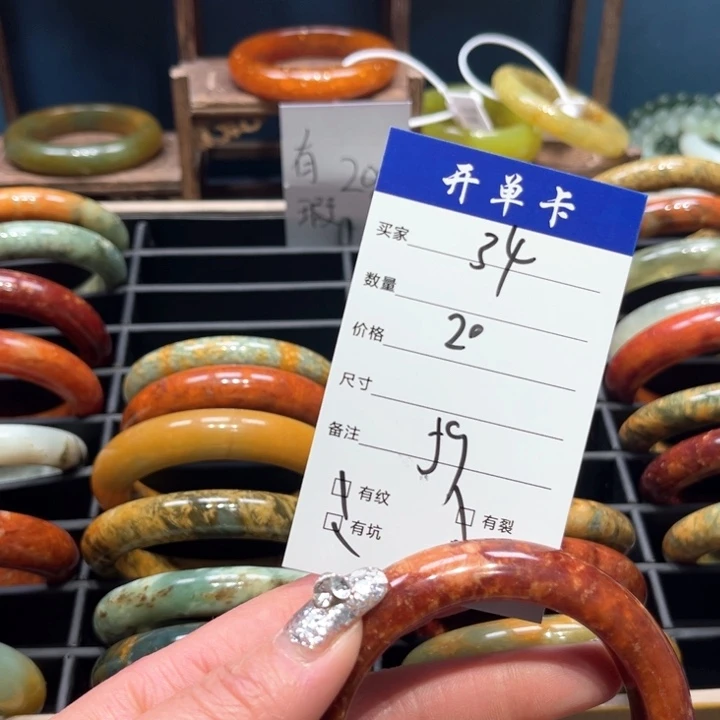 有 20
瑕
开单卡
买家 34
数量
价格 20
尺寸
备注 59
有纹
有坑 有裂